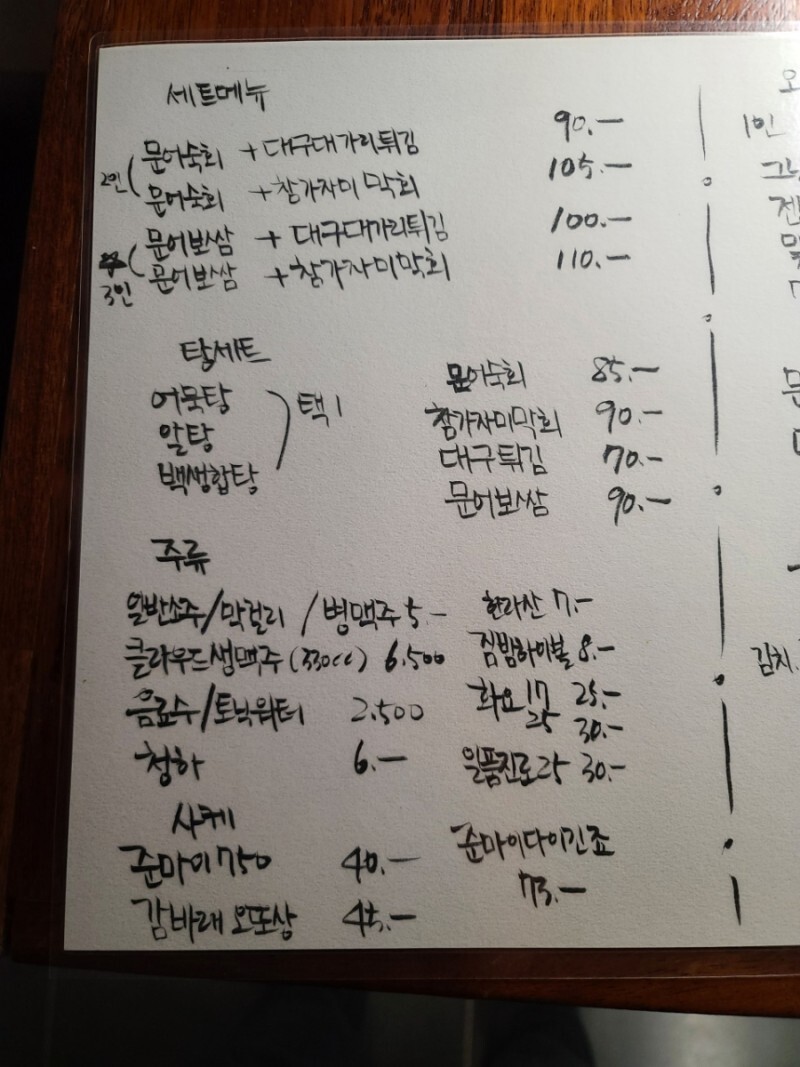 세트메뉴
2인 ( 문어숙회 + 대구대가리튀김 90.-
문어숙회 + 참가자미막회 105.-
3인 ( 문어보쌈 + 대구대가리튀김 100.-
문어보쌈 + 참가자미막회 110.-
탕세트
어묵탕
알탕
백생합탕
) 택 1
문어숙회 85.-
참가자미막회 90.-
대구튀김 70.-
문어보쌈 90.-
주류
일반소주/막걸리 / 병맥주 5.-
클라우드생맥주 (330cc) 6.500
음료수/토닉워터 2.500
청하 6.-
한라산 7.-
짐빔하이볼 8.-
화요 17 25.-
25 30.-
일품진로25 30.-
사케
준마이750 40.-
감바레 오또상 45.-
준마이다이긴죠
73.-
1인
김치.